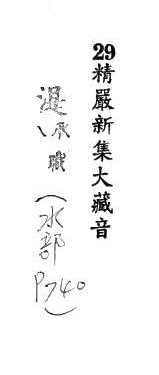 29精嚴新集大藏音
湜承職(水部P740)